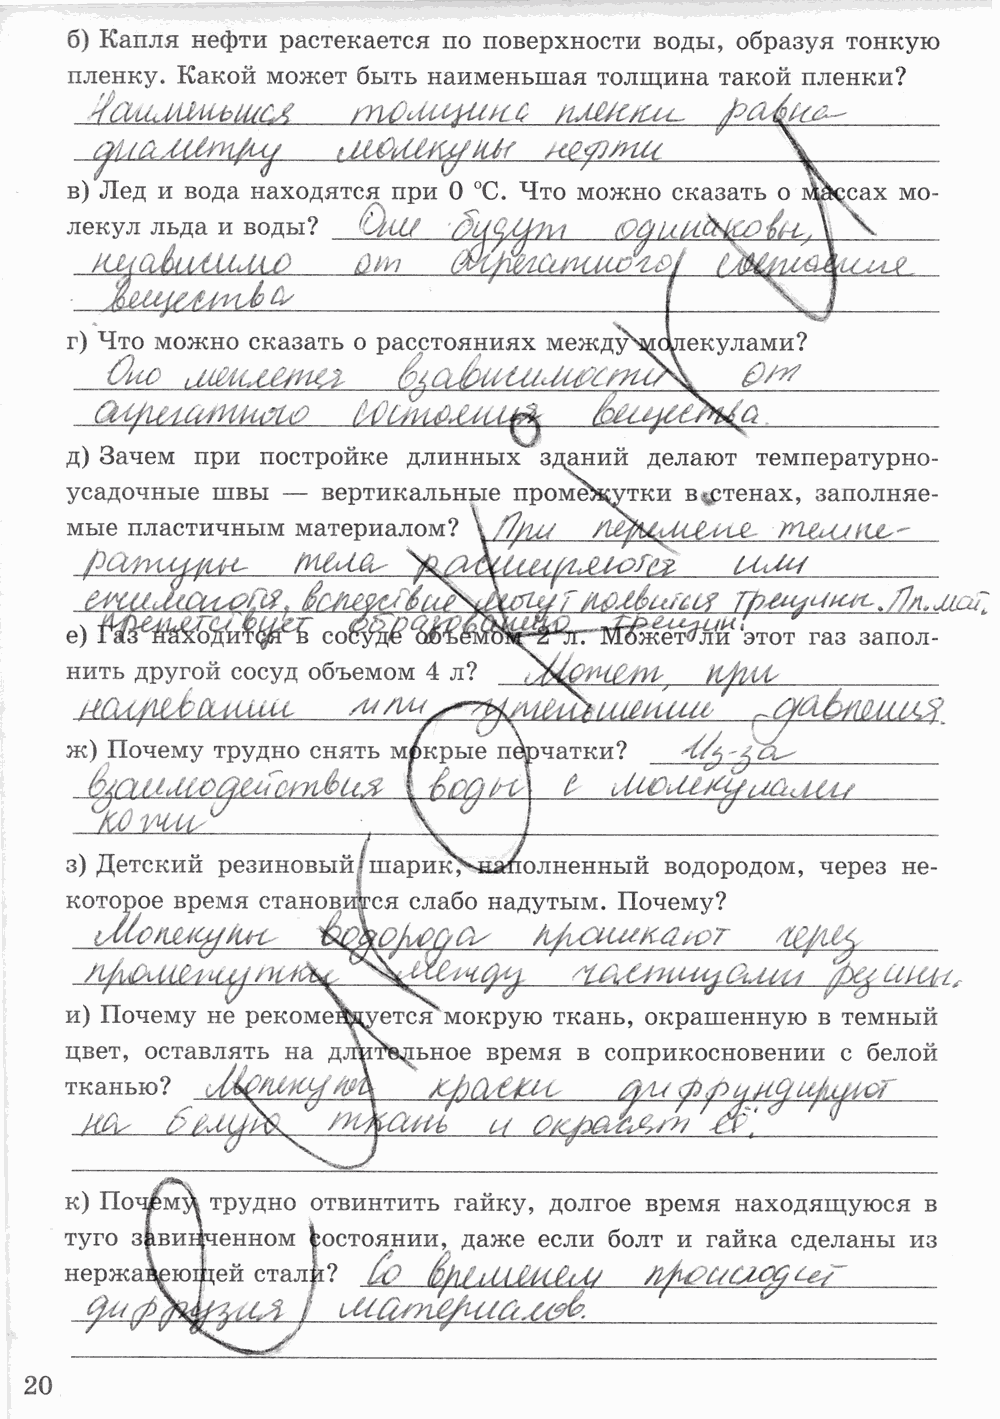 б) Капля нефти растекается по поверхности воды, образуя тонкую
пленку. Какой может быть наименьшая толщина такой пленки?
Наименьшая толщина пленки равна
диаметру молекулы нефти
в) Лед и вода находятся при 0 °С. Что можно сказать о массах мо-
лекул льда и воды? Они будут одинаковы,
независимо от агрегатного состояния
вещества
г) Что можно сказать о расстояниях между молекулами?
Оно меняется взависимости от
агрегатного состояния вещества.
д) Зачем при постройке длинных зданий делают температурно-
усадочные швы — вертикальные промежутки в стенах, заполняе-
мые пластичным материалом? При перемене темпе-
ратуры тела расширяются или
сжимаются, вследствие могут появится трещины. Пл. мат.
препятствует образованию трещин.
е) Газ находится в сосуде объемом 2 л. Может ли этот газ запол-
нить другой сосуд объемом 4 л? Может, при
нагревании или уменьшении давления.
ж) Почему трудно снять мокрые перчатки? Из-за
взаимодействия воды с молекулами
кожи
з) Детский резиновый шарик, наполненный водородом, через не-
которое время становится слабо надутым. Почему?
Молекулы водорода проникают через
промежутки между частицами резины.
и) Почему не рекомендуется мокрую ткань, окрашенную в темный
цвет, оставлять на длительное время в соприкосновении с белой
тканью? Молекулы краски диффундируют
на белую ткань и окрасят её.
к) Почему трудно отвинтить гайку, долгое время находящуюся в
туго завинченном состоянии, даже если болт и гайка сделаны из
нержавеющей стали? Со временем происходит
диффузия материалов.
20